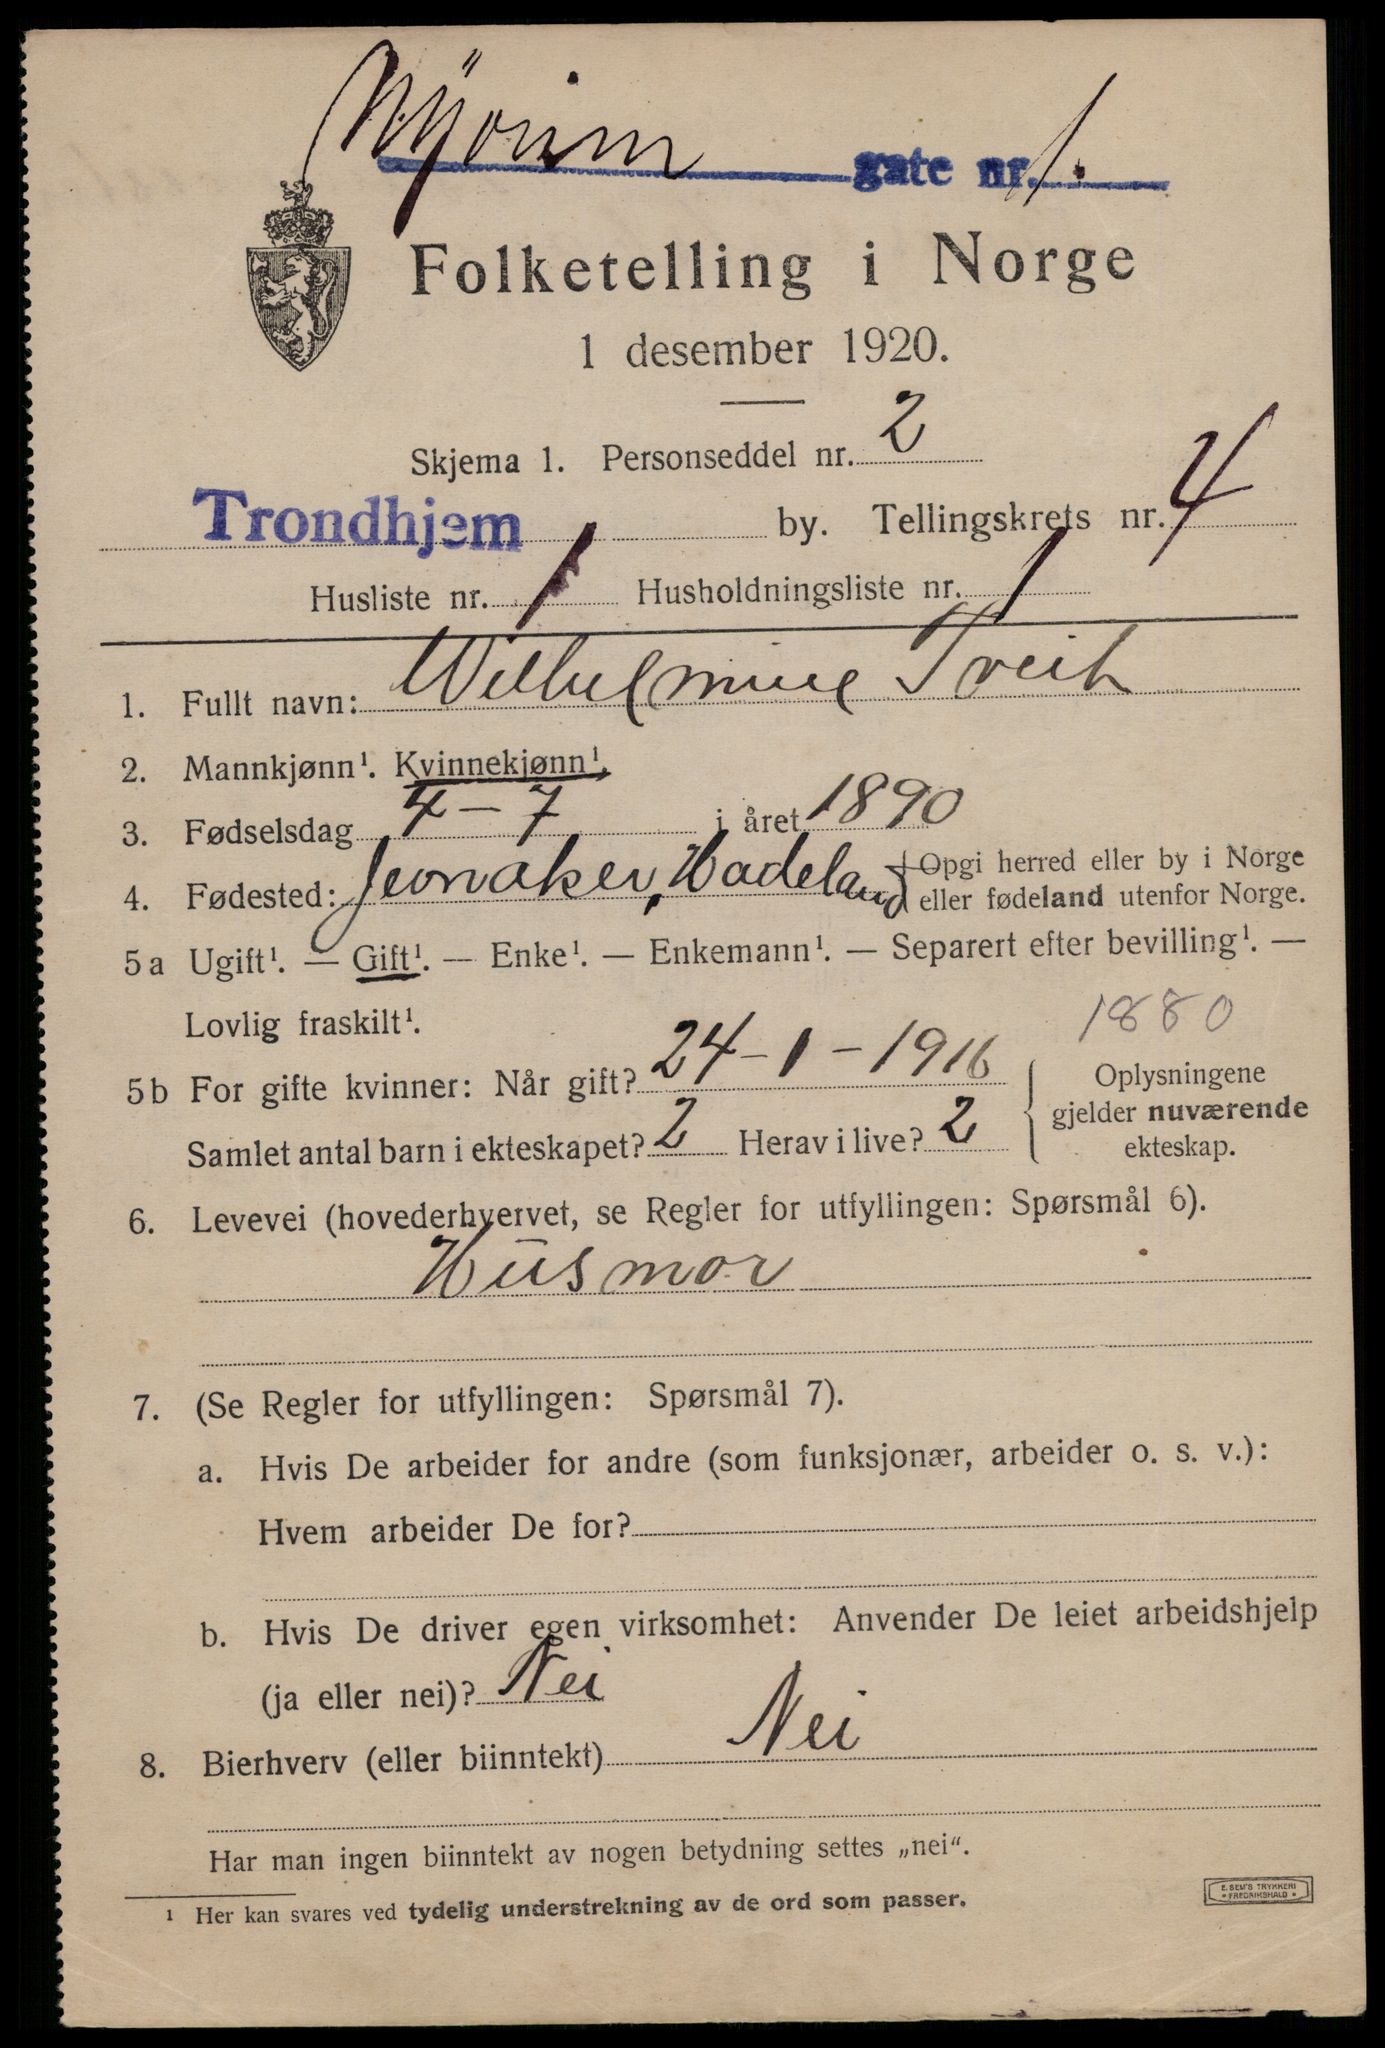 gate nr. 1.
Folketelling i Norge
1 desember 1920.
Skjema 1. Personseddel nr. 2
Trondhjem by. Tellingskrets nr. 4
Husliste nr. 1 Husholdningsliste nr. 1
1. Fullt navn: Wilhelmine Tveit
2. Mannkjønn¹. Kvinnekjønn¹.
3. Fødselsdag 4-7 i året 1890
4. Fødested: Jevnaker, Hadeland { Opgi herred eller by i Norge
eller fødeland utenfor Norge.
5a Ugift¹. — Gift¹. — Enke¹. — Enkemann¹. — Separert efter bevilling¹. —
Lovlig fraskilt¹.
1880
5b For gifte kvinner: Når gift? 24-1-1916
Samlet antal barn i ekteskapet? 2 Herav i live? 2
{ Oplysningene
gjelder nuværende
ekteskap.
6. Levevei (hovederhvervet, se Regler for utfyllingen: Spørsmål 6).
Husmor
7. (Se Regler for utfyllingen: Spørsmål 7).
a. Hvis De arbeider for andre (som funksjonær, arbeider o. s. v.):
Hvem arbeider De for?
b. Hvis De driver egen virksomhet: Anvender De leiet arbeidshjelp
(ja eller nei)? Nei
8. Bierhverv (eller biinntekt) Nei
Har man ingen biinntekt av nogen betydning settes „nei“.
¹ Her kan svares ved tydelig understrekning av de ord som passer.
E. SEM'S TRYKKERI
FREDRIKSHALD